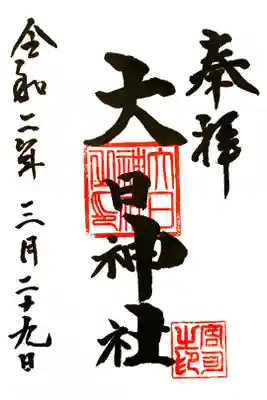 奉拝
大日神社
大日
神社
之印
宮司
之印
令和二年三月二十九日